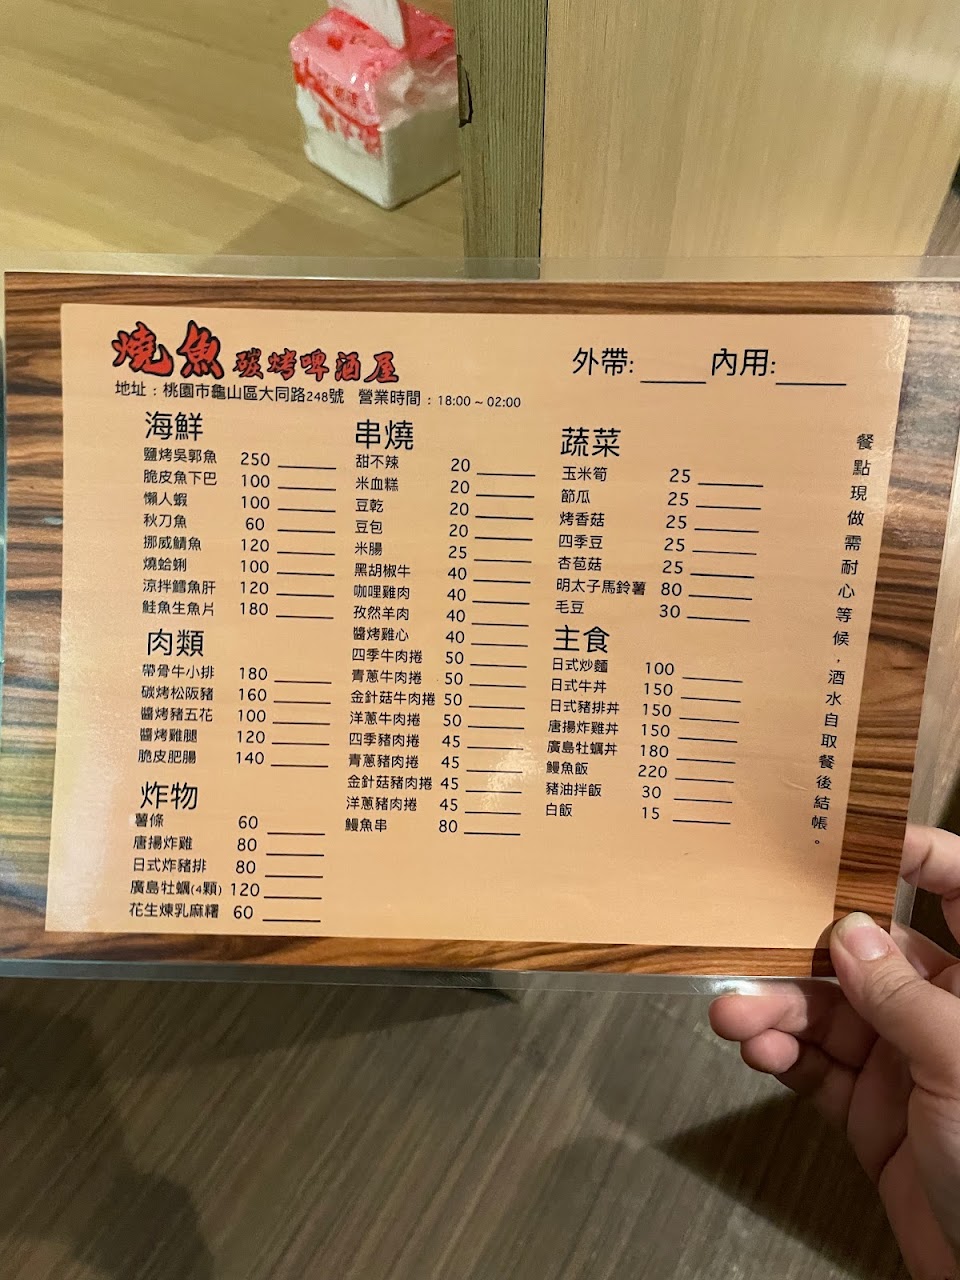 燒魚碳烤啤酒屋
外帶: 內用:
地址：桃園市龜山區大同路248號 營業時間：18:00～02:00
海鮮
鹽烤吳郭魚 250
脆皮魚下巴 100
懶人蝦 100
秋刀魚 60
挪威鯖魚 120
燒蛤蜊 100
涼拌鱈魚肝 120
鮭魚生魚片 180
肉類
帶骨牛小排 180
碳烤松阪豬 160
醬烤豬五花 100
醬烤雞腿 120
脆皮肥腸 140
炸物
薯條 60
唐揚炸雞 80
日式炸豬排 80
廣島牡蠣(4顆) 120
花生煉乳麻糬 60
串燒
甜不辣 20
米血糕 20
豆乾 20
豆包 20
米腸 25
黑胡椒牛 40
咖哩雞肉 40
孜然羊肉 40
醬烤雞心 40
四季牛肉捲 50
青蔥牛肉捲 50
金針菇牛肉捲 50
洋蔥牛肉捲 50
四季豬肉捲 45
青蔥豬肉捲 45
金針菇豬肉捲 45
洋蔥豬肉捲 45
鰻魚串 80
蔬菜
玉米筍 25
節瓜 25
烤香菇 25
四季豆 25
杏苞菇 25
明太子馬鈴薯 80
毛豆 30
主食
日式炒麵 100
日式牛丼 150
日式豬排丼 150
唐揚炸雞丼 150
廣島牡蠣丼 180
鰻魚飯 220
豬油拌飯 30
白飯 15
餐點現做需耐心等候，酒水自取餐後結帳。